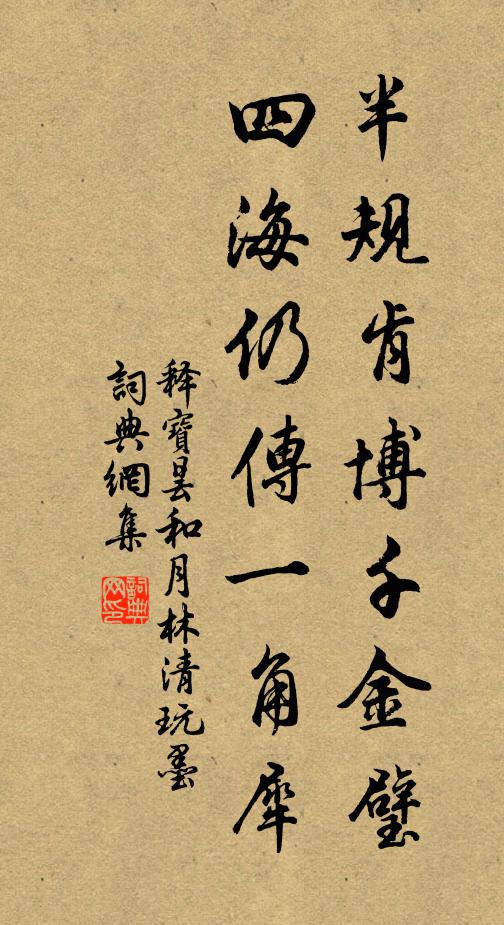 半規肯博千金璧
四海仍傳一角犀
釋寶曇和月林清玩墨
詞典網集
詞典网印